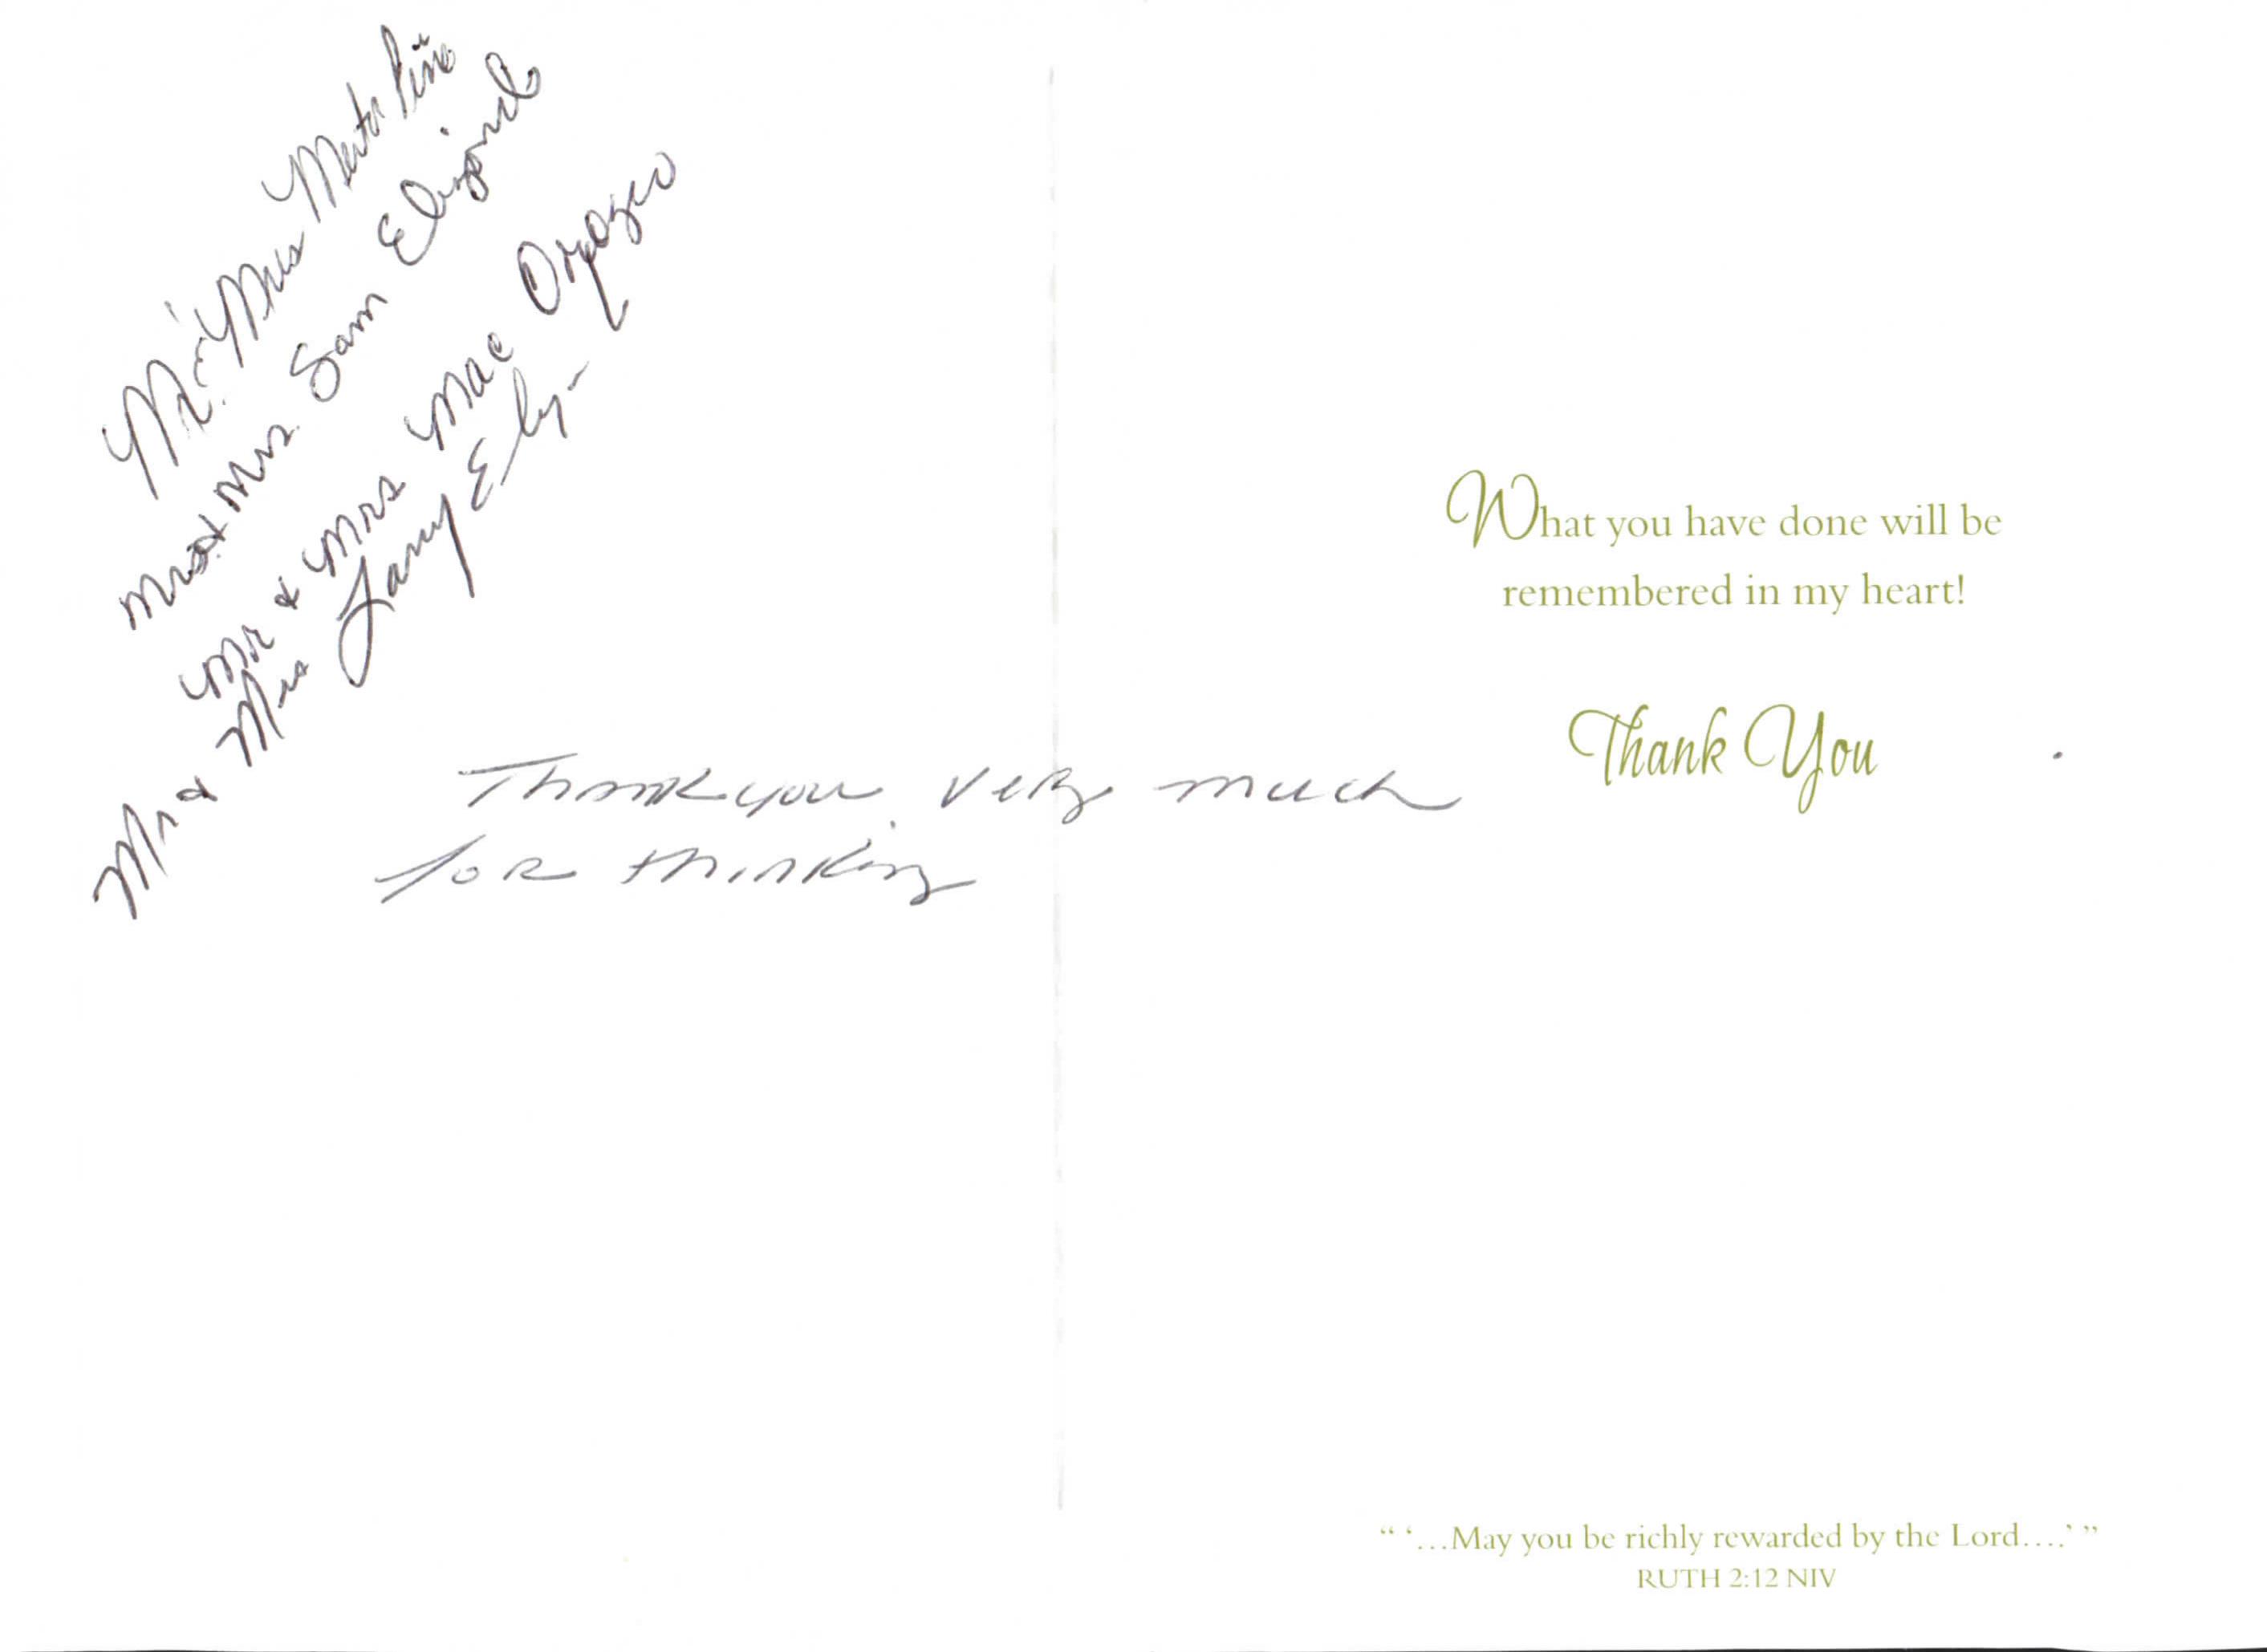 Mr. Mrs
Mr & Mrs. Sam Elizondo
Mr & Mrs Mac Orozco
Mr & Mrs Larry
Thank you very much
for thinking
What you have done will be
remembered in my heart!
Thank You
“ ‘…May you be richly rewarded by the Lord….’ ”
RUTH 2:12 NIV